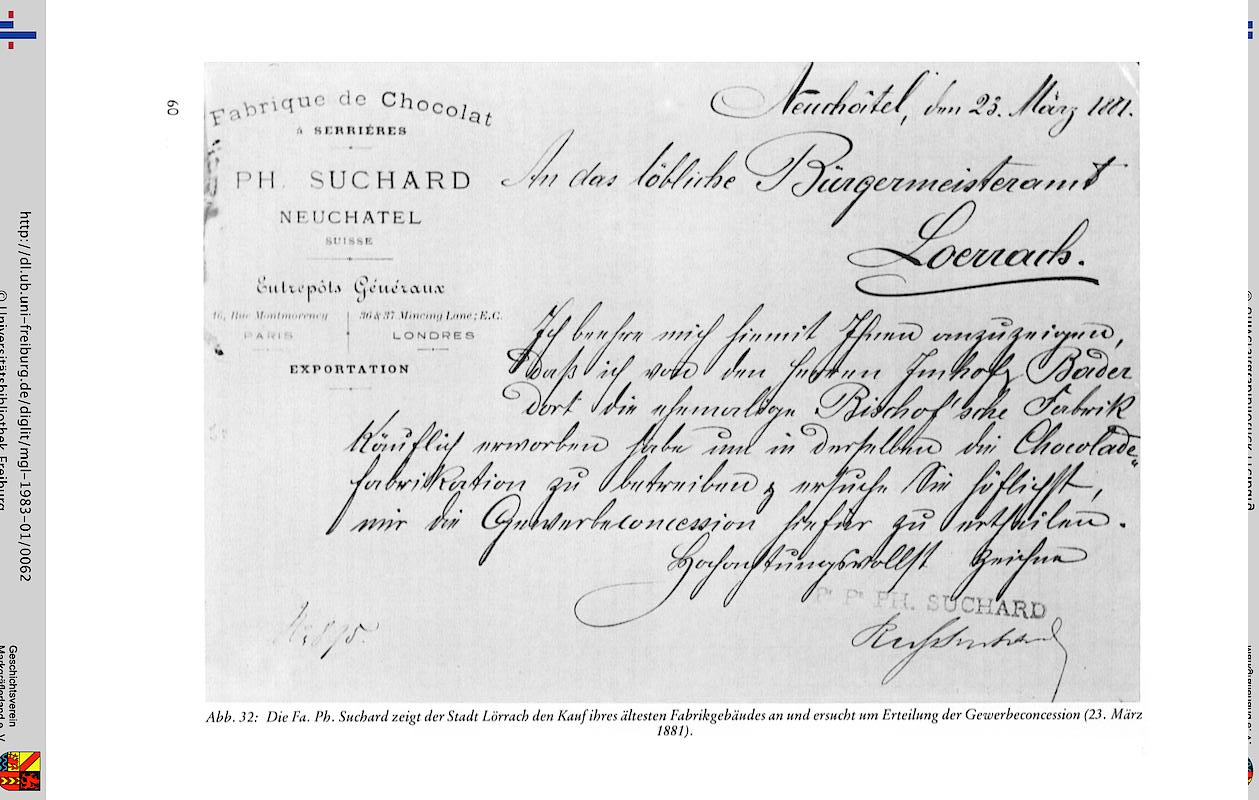 60
Fabrique de Chocolat
à SERRIÈRES
PH. SUCHARD
NEUCHATEL
SUISSE
Entrepôts Généraux
16, Rue Montmorency
PARIS
36 & 37 Mincing Lane; E.C.
LONDRES
EXPORTATION
Neuchâtel, den 23. März 1881.
An das löbliche Bürgermeisteramt
Loerrach.
Ich beehre mich hiemit Ihnen anzuzeigen,
daß ich von den Herren Imhof & Bader
dort die ehemalige Bischof'sche Fabrik
käuflich erworben habe um in derselben die Chocolade-
fabrikation zu betreiben & ersuche Sie höflichst,
mir die Gewerbeconcession hiefür zu ertheilen.
Hochachtungsvollst zeichne
PH. SUCHARD
Abb. 32: Die Fa. Ph. Suchard zeigt der Stadt Lörrach den Kauf ihres ältesten Fabrikgebäudes an und ersucht um Erteilung der Gewerbeconcession (23. März
1881).
http://dl.ub.uni-freiburg.de/diglit/mgl-1983-01/0062
© Universitätsbibliothek Freiburg
Geschichtsverein
Markgräflerland e. V.